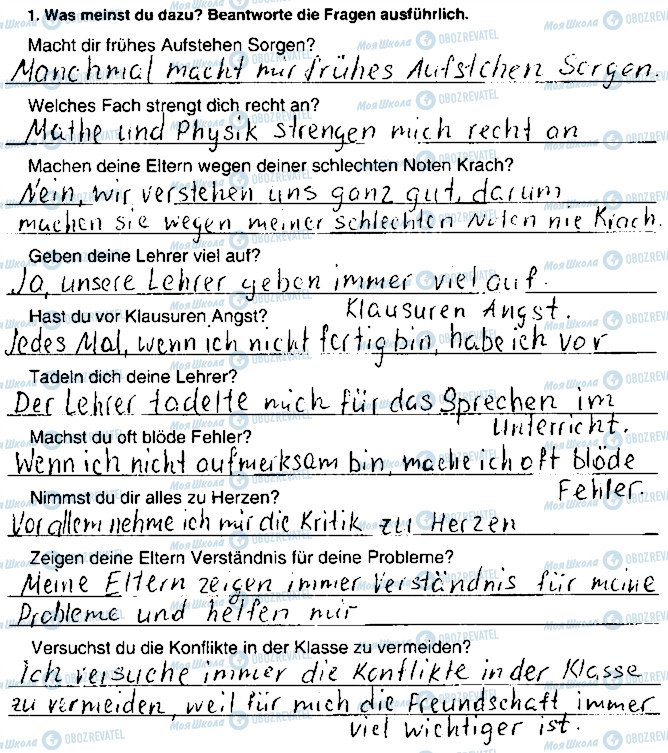 1. Was meinst du dazu? Beantworte die Fragen ausführlich.
Macht dir frühes Aufstehen Sorgen?
Manchmal macht mir frühes Aufstehen Sorgen.
Welches Fach strengt dich recht an?
Mathe und Physik strengen mich recht an
Machen deine Eltern wegen deiner schlechten Noten Krach?
Nein, wir verstehen uns ganz gut, darum
machen sie wegen meiner schlechten Noten nie Krach.
Geben deine Lehrer viel auf?
Ja, unsere Lehrer geben immer viel auf.
Hast du vor Klausuren Angst?
Jedes Mal, wenn ich nicht fertig bin, habe ich vor
Klausuren Angst.
Tadeln dich deine Lehrer?
Der Lehrer tadelte mich für das Sprechen im
Unterricht.
Machst du oft blöde Fehler?
Wenn ich nicht aufmerksam bin, mache ich oft blöde
Fehler.
Nimmst du dir alles zu Herzen?
Vor allem nehme ich mir die Kritik zu Herzen
Zeigen deine Eltern Verständnis für deine Probleme?
Meine Eltern zeigen immer Verständnis für meine
Probleme und helfen mir
Versuchst du die Konflikte in der Klasse zu vermeiden?
Ich versuche immer die Konflikte in der Klasse
zu vermeiden, weil für mich die Freundschaft immer
viel wichtiger ist.
Моя Школа OBOZREVATEL